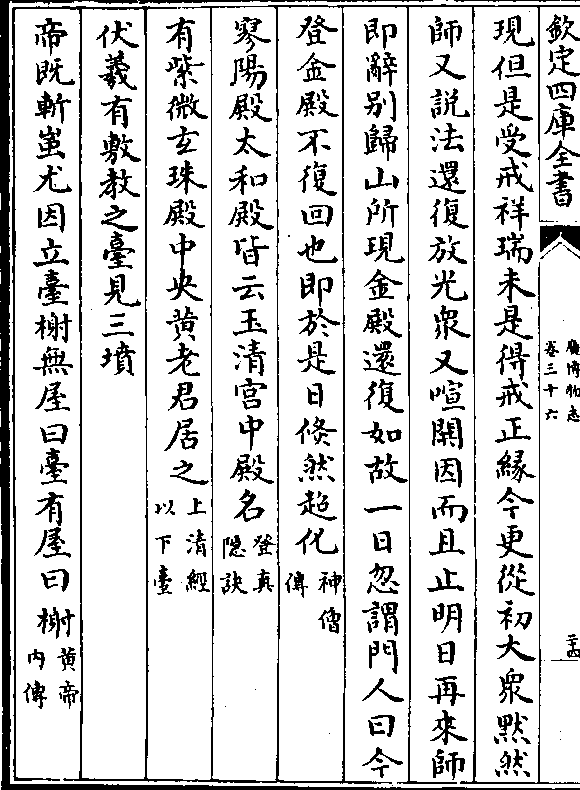 欽定四庫全書
廣博物志
卷三十六
二十四
現但是受戒祥瑞未是得戒正緣今更從初大衆黙然
師又説法還復放光衆又喧鬧因而且止明日再來師
即辭别歸山所現金殿還復如故一日忽謂門人曰今
登金殿不復回也即於是日倐然超化神僧傳
寥陽殿太和殿皆云玉清宫中殿名登真隠訣
有紫微玄珠殿中央黄老君居之上清經以下臺
伏羲有敷教之臺見三墳
帝既斬蚩尤因立臺榭無屋曰臺有屋曰榭黄帝内傳